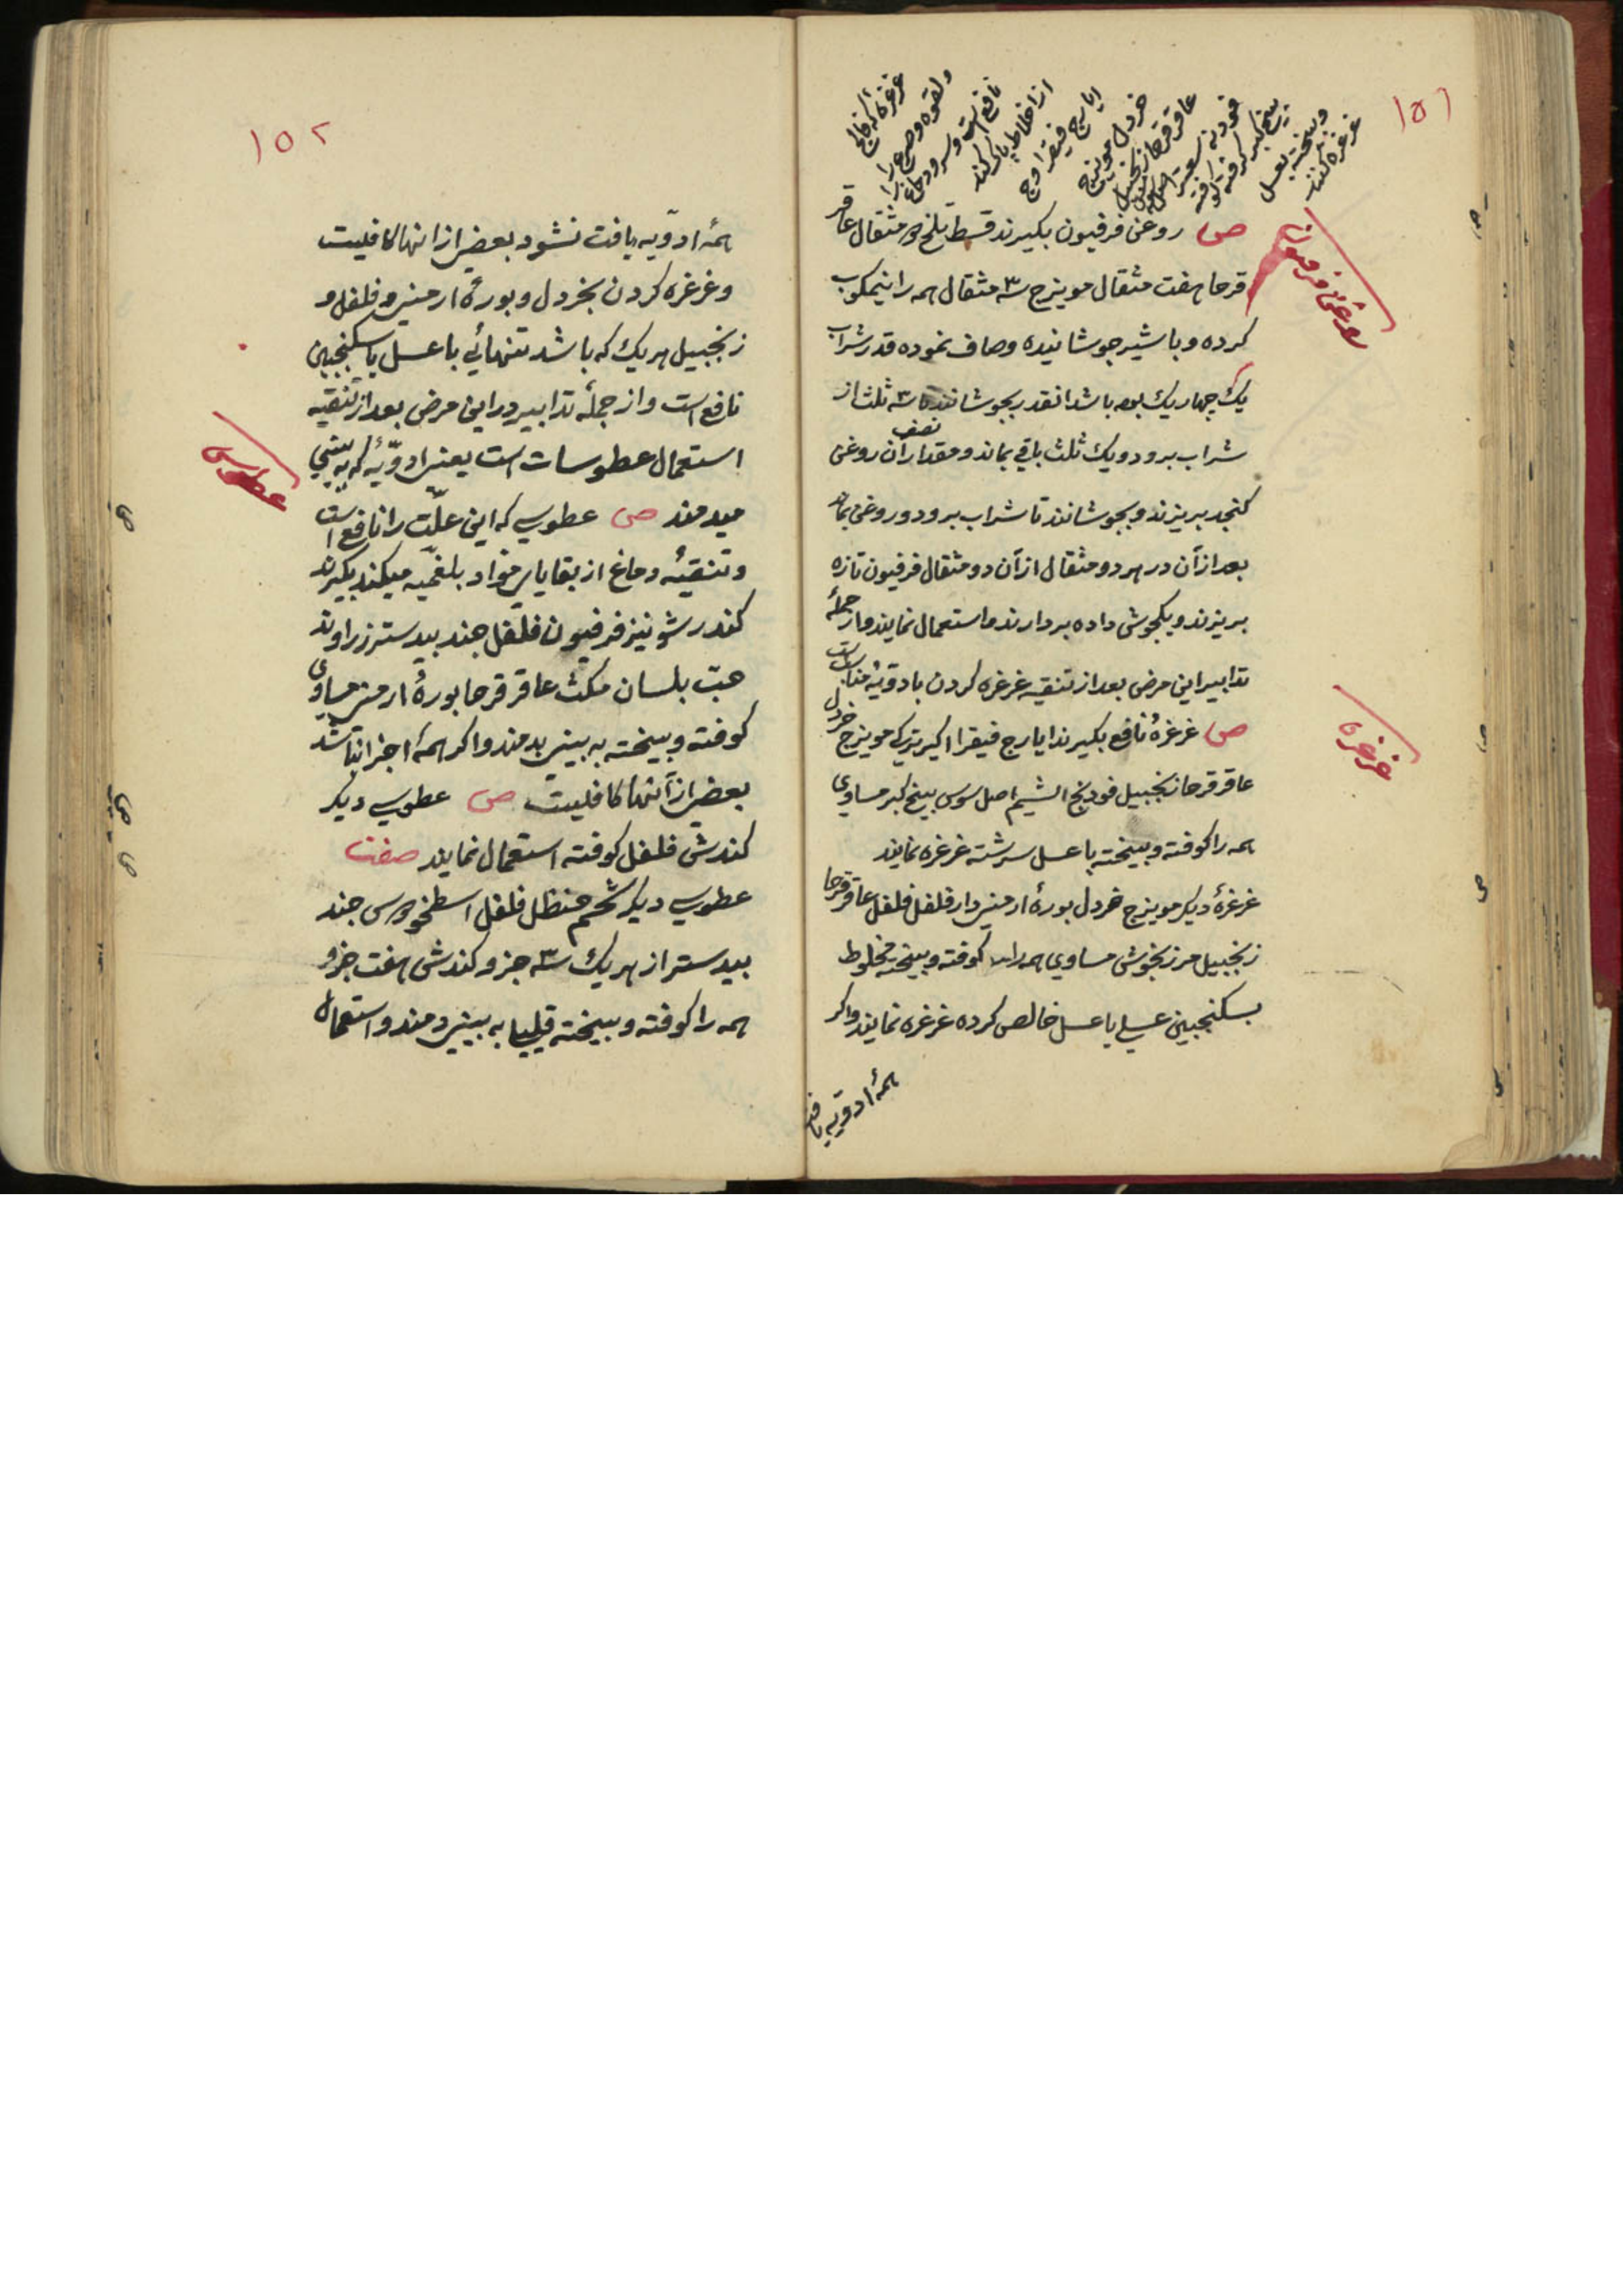 ۱۵۱
غرغره که فالج
ولقوه وصرع را
نافع است وسر ودماغ را
از اخلاط پاک کند
ایارج فیقرا وج
خردل مویزج
عاقرقرحا زنجبیل
فودنه سعتر اصل سوس
بیخ کبر کوفته
وبیخته بعسل
غرغره کنند
ص روغن فرفیون بکیرند قسط تلخ مثقال عاقر
قرحا هفت مثقال مویزج سه مثقال همه را نیمکوب
کرده و با شیر جوشانیده وصاف نموده قدر شراب
یک چهاریک بوده باشد انقدر بجوشانند تا سه ثلث از
شراب برود ویک ثلث باقی بماند و مقدار نصف آن روغن
کنجد بریزند و بجوشانند تا شراب برود و روغن بماند
بعد از آن در هر دو مثقال از آن دو مثقال فرفیون تازه
بریزند و یکجوش داده بردارند و استعمال نمایند و از جمله
تدابیر این مرض بعد از تنقیه غرغره کردن بادویهٔ مناسب است
ص غرغرهٔ نافع بکیرند ایارج فیقرا اکیر ترکی مویزج خردل
عاقرقرحا زنجبیل فودنج اصل سوس بیخ کبر مساوی
همه را کوفته و بیخته با عسل سرشته غرغره نمایند
غرغرهٔ دیکر مویزج خردل بورهٔ ارمنی دارفلفل فلفل عاقرقرحا
زنجبیل مرزنجوش مساوی همه را کوفته و بیخته مخلوط
بسکنجبین عسلی یا عسل خالص کرده غرغره نمایند واکر
همهٔ ادویه یافت
روغن فرفیون
غرغره
۱۵۲
همهٔ ادویه یافت نشود بعضی از انها کافیست
و غرغره کردن بخردل و بورهٔ ارمنی و فلفل و
زنجبیل هر یک که باشد تنهائی با عسل یا سکنجبین
نافع است و از جملهٔ تدابیر در این مرض بعد از تنقیه
استعمال عطوسات است یعنی ادویهٔ که به بینی
میدمند ص عطوسی که این علت را نافع است
و تنقیهٔ دماغ از بقایای مواد بلغمیه میکند بکیرند
کندر شونیز فرفیون فلفل جند بیدستر زراوند
حب بلسان مکث عاقرقرحا بورهٔ ارمنی مساوی
کوفته و بیخته به بینی بدمند و اکر همهٔ اجزا نباشد
بعضی از آنها کافیست ص عطوسی دیکر
کندش فلفل کوفته استعمال نمایند صفت
عطوسی دیکر شحم حنظل فلفل اسطوخودوس جند
بیدستر از هر یک سه جزو کندش هفت جزو
همه را کوفته و بیخته قلیلیا به بینی دمند و استعمال
عطوس